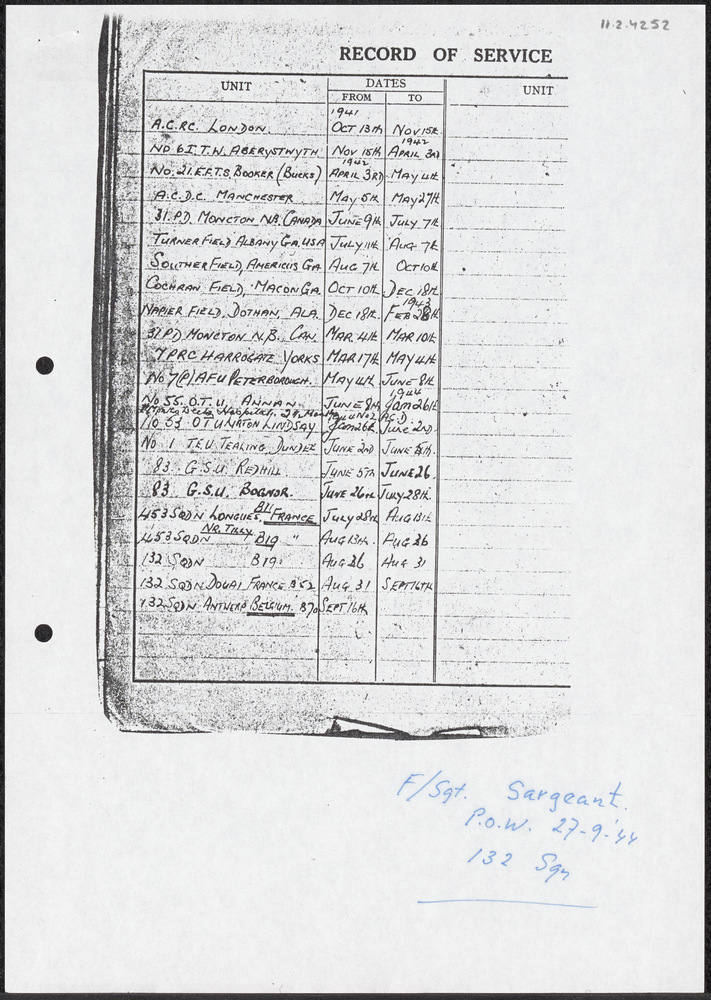 11.2.4252
RECORD OF SERVICE
UNIT DATES UNIT
FROM TO
1941
A.C.R.C. LONDON. OCT 13th NOV 15th
1942
NO 6 I.T.W. ABERYSTWYTH NOV 15th APRIL 3RD
1942
NO. 21. E.F.T.S. BOOKER (BUCKS) APRIL 3RD MAY 4th
A.C.D.C. MANCHESTER MAY 5th MAY 27th
31. P.D. MONCTON N.B. CANADA JUNE 9th JULY 7th
TURNER FIELD ALBANY GA. USA JULY 11th AUG 7th
SOUTHER FIELD, AMERICUS GA AUG 7th OCT 10th
COCHRAN FIELD, MACON GA. OCT 10th DEC 18th
1943
NAPIER FIELD, DOTHAN, ALA. DEC 18th FEB 28th
31 PD MONCTON N.B. CAN. MAR 4th MAR 10th
7 PRC HARROGATE YORKS MAR 17th MAY 4th
NO 7(P)AFU PETERBOROUGH. MAY 4th JUNE 8th
1944
NO 55. O.T.U. ANNAN JUNE 8th Jan 26th
Hospital.
NO 53 OTU KIRTON LINDSAY Jan 26th June 2ND.
NO 1 TEU TEALING DUNDEE JUNE 2ND JUNE 5th.
83. G.S.U. REDHILL JUNE 5th JUNE 26.
83. G.S.U. BOGNOR. JUNE 26th JULY 28th.
453 SQDN LONGUES, B11 FRANCE JULY 28th AUG 13th
NR. TILLY
453 SQDN B19 " AUG 13th. AUG 26
132 SQDN B19. AUG 26 AUG 31
132 SQDN DOUAI FRANCE B52 AUG 31 SEPT 16TH
132 SQDN ANTWERP BELGIUM. B70 SEPT 16th
F/Sgt. Sargeant.
P.O.W. 27-9-'44
132 Sqn